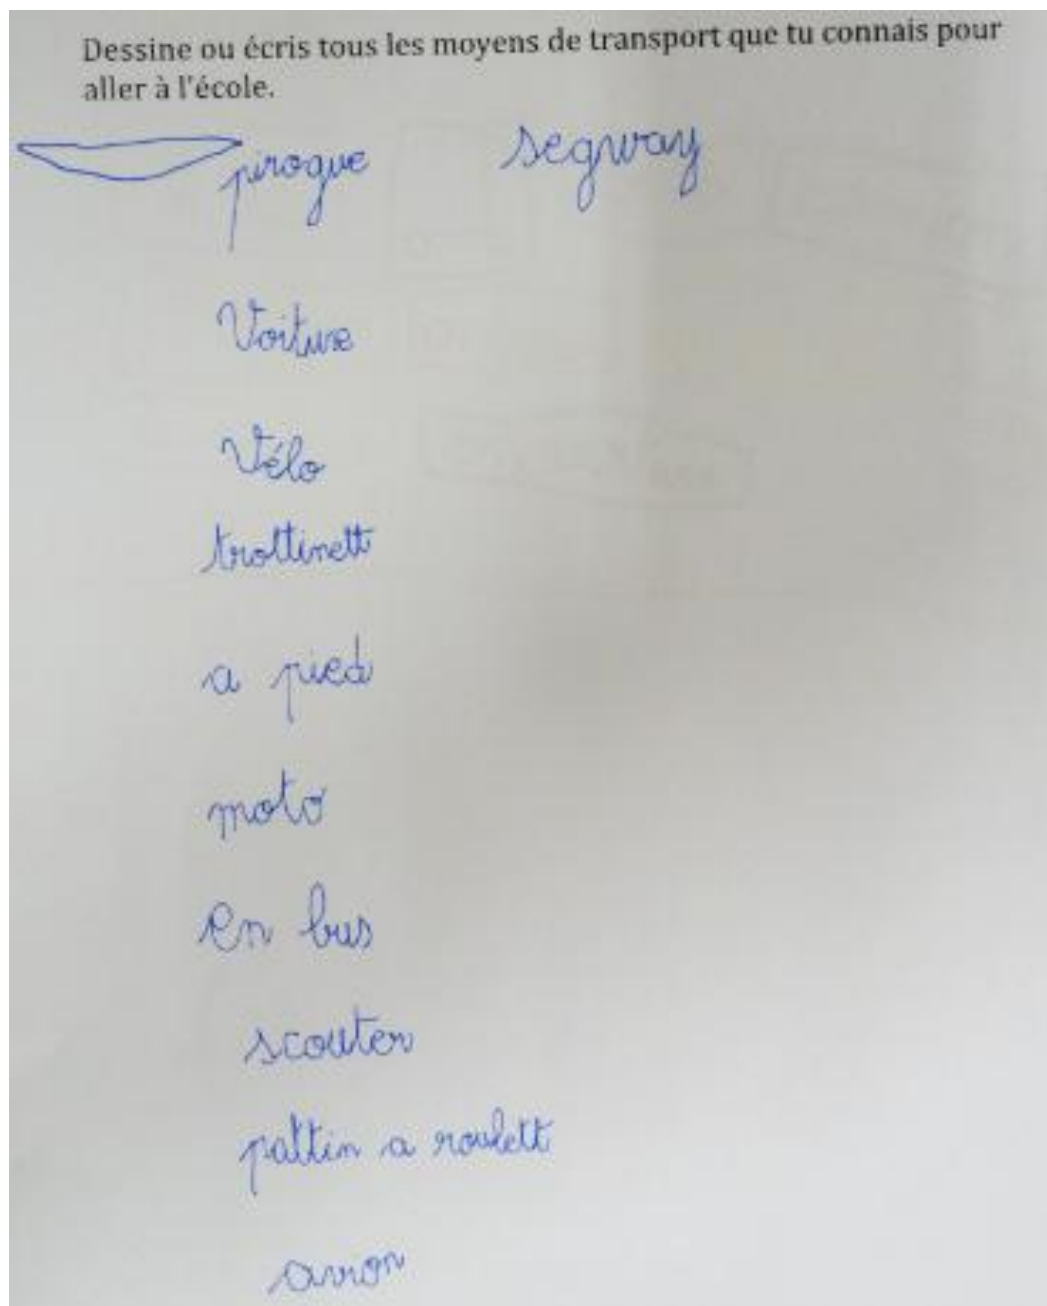 Dessine ou écris tous les moyens de transport que tu connais pour
aller à l'école.
pirogue segway
Voiture
Vélo
trottinett
a pied
moto
en bus
scouter
pattin a roulett
avion